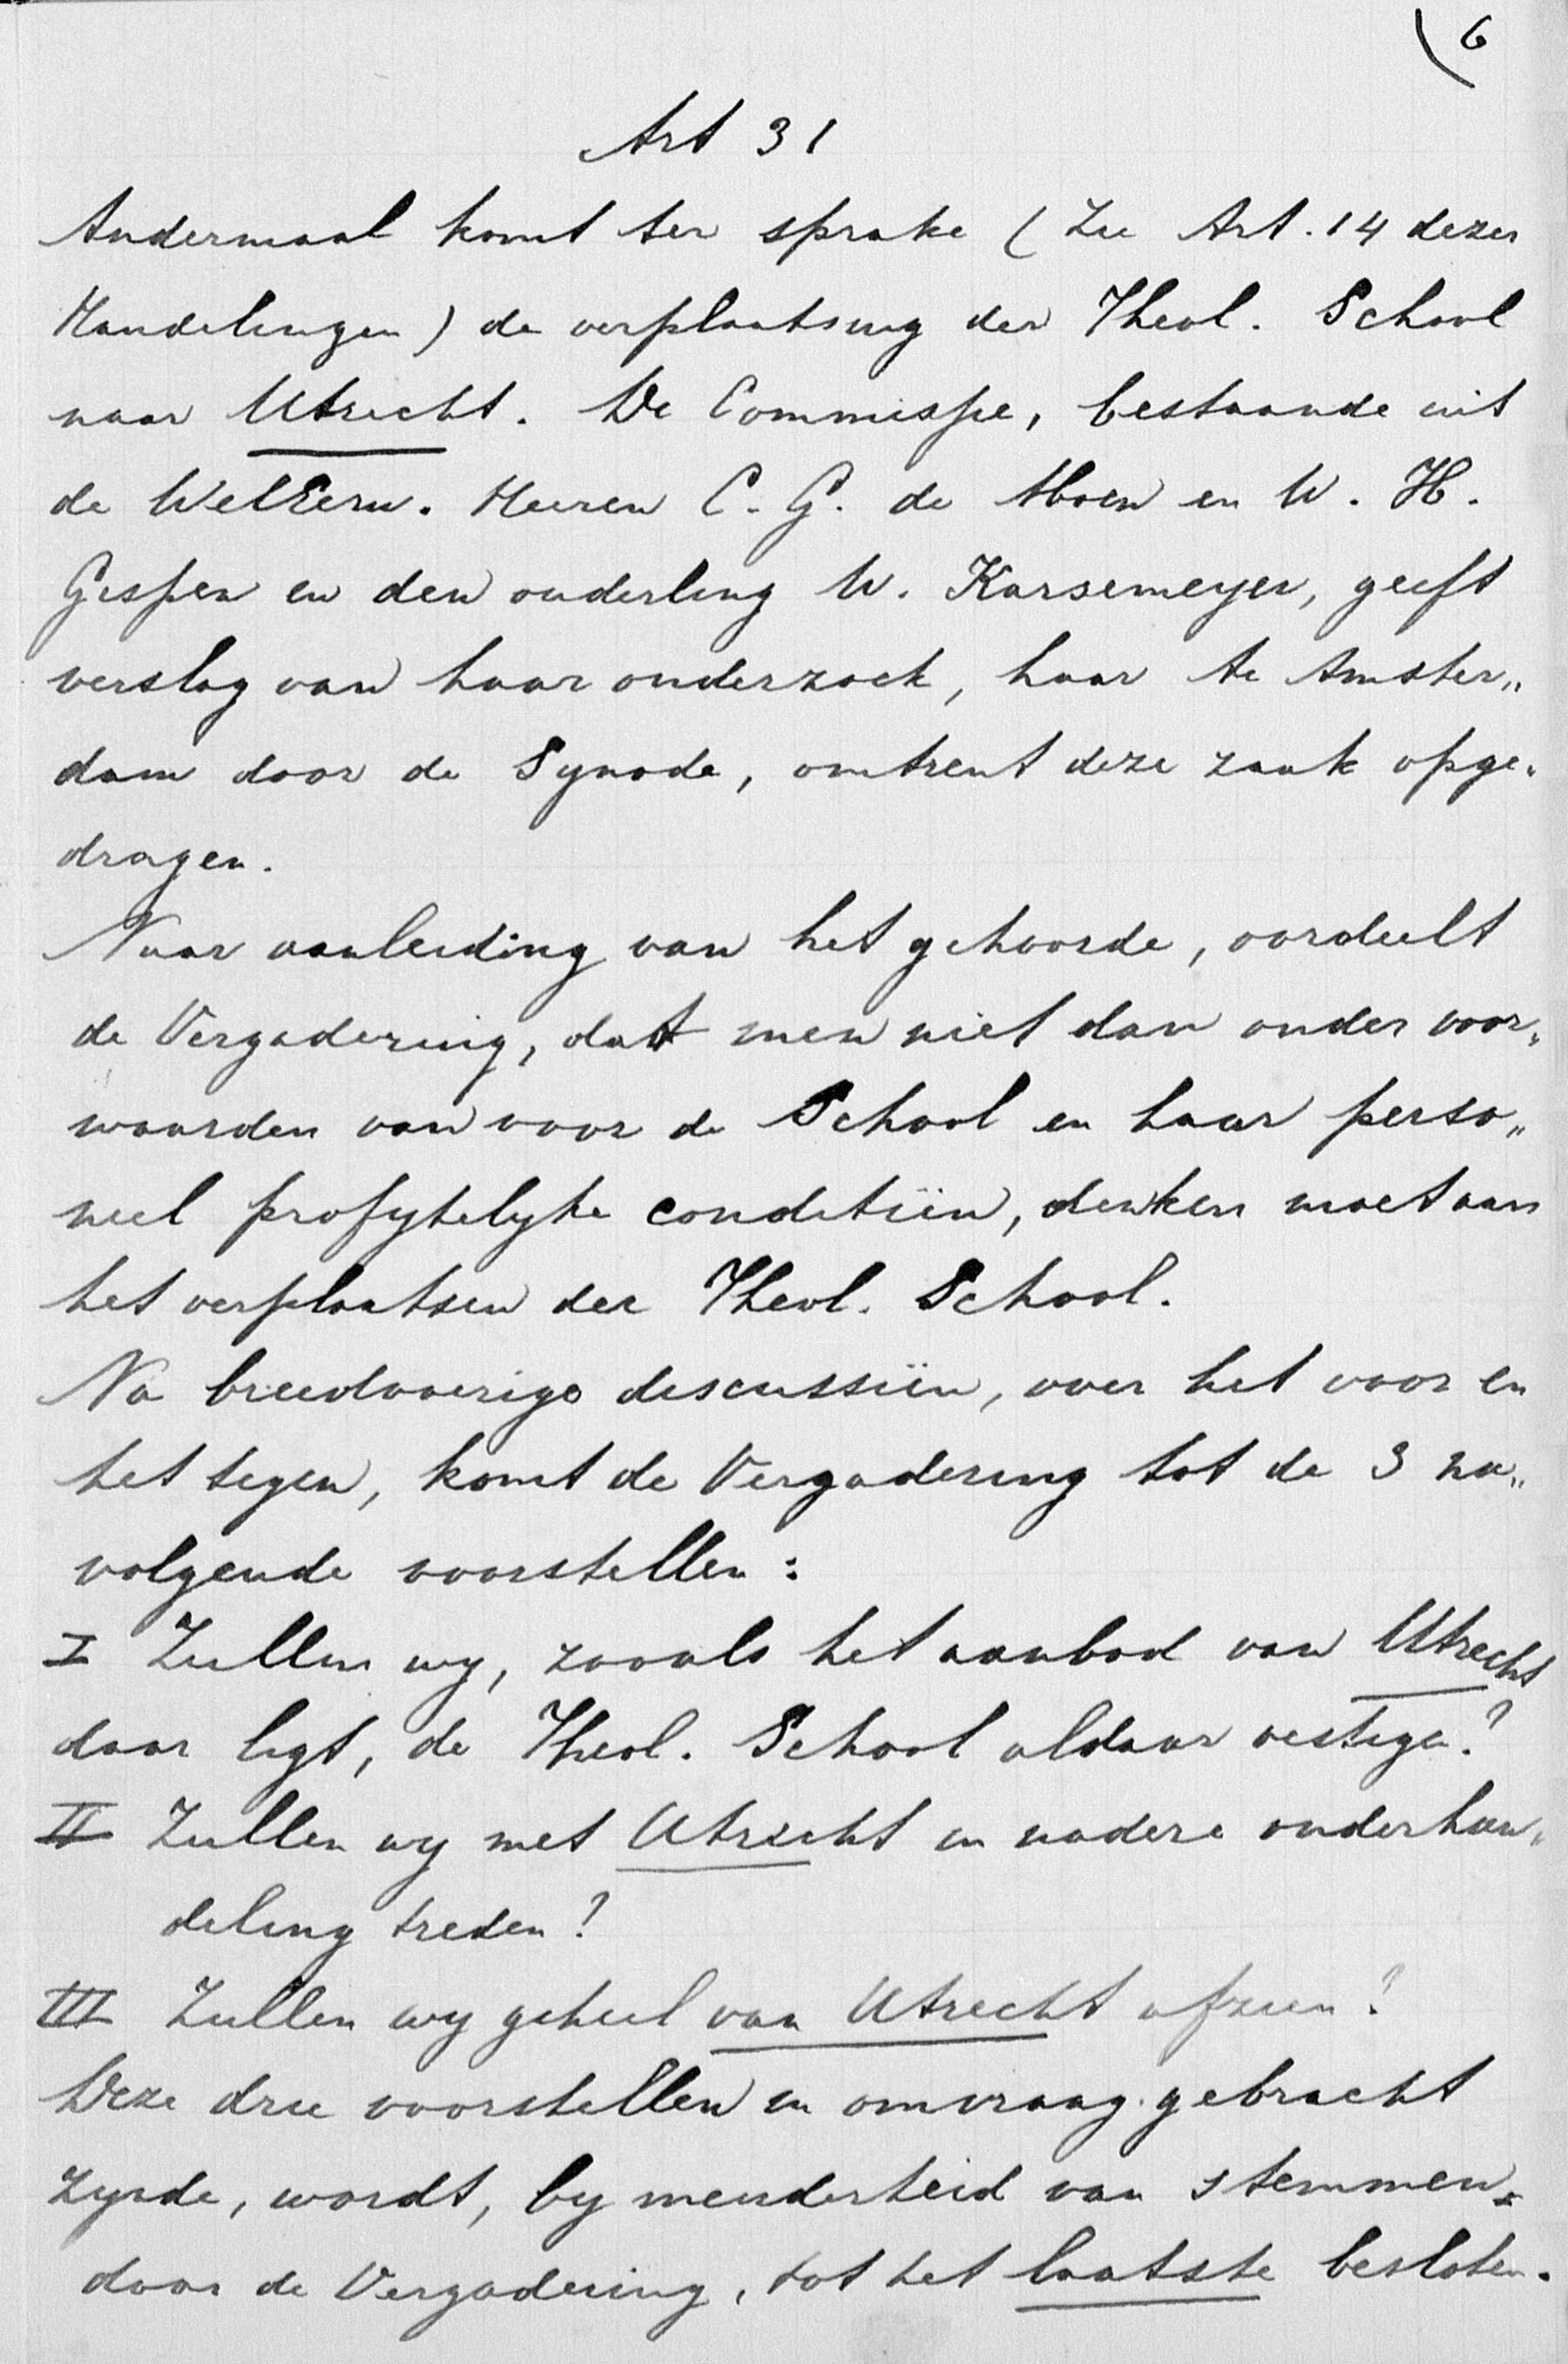 6
Art 31
Andermaal komt ter sprake (Zie Art. 14 dezer
Handelingen) de verplaatsing der Theol. School
naar Utrecht. De Commissie, bestaande uit
de WelEerw. Heeren C. G. de Moen en W. H.
Gispen en den ouderling W. Karsemeyer, geeft
verslag van haar onderzoek, haar te Amster„
dam door de Synode, omtrent deze zaak opge„
dragen.
Naar aanleiding van het gehoorde, oordeelt
de Vergadering, dat men niet dan onder voor„
waarden van voor de School en haar perso„
neel profytelyke conditiën, denken moet aan
het verplaatsen der Theol. School.
Na breedvoerige discussiën, over het voor en
het tegen, komt de Vergadering tot de 3 na„
volgende voorstellen:
I Zullen wy, zooals het aanbod van Utrecht
daar ligt, de Theol. School aldaar vestigen?
II Zullen wy met Utrecht in nadere onderhan„
deling treden?
III Zullen wy geheel van Utrecht afzien?
Deze drie voorstellen in omvraag gebracht
zynde, wordt, by meerderheid van stemmen
door de Vergadering, tot het laatste besloten.